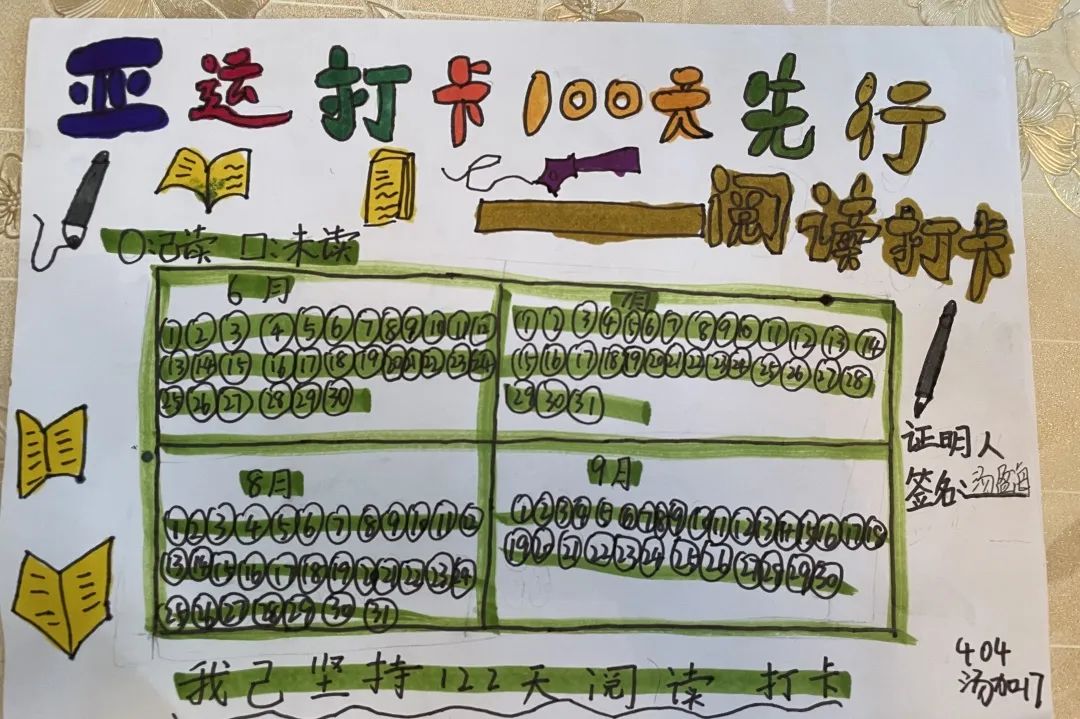 亚运打卡100天先行
阅读打卡
○:已读 □:未读
6月
① ② ③ ④ ⑤ ⑥ ⑦ ⑧ ⑨ ⑩ ⑪ ⑫
⑬ ⑭ ⑮ ⑯ ⑰ ⑱ ⑲ ⑳ ㉑ ㉒ ㉓ ㉔
㉕ ㉖ ㉗ ㉘ ㉙ ㉚
7月
① ② ③ ④ ⑤ ⑥ ⑦ ⑧ ⑨ ⑩ ⑪ ⑫ ⑬ ⑭
⑮ ⑯ ⑰ ⑱ ⑲ ⑳ ㉑ ㉒ ㉓ ㉔ ㉕ ㉖ ㉗ ㉘
㉙ ㉚ ㉛
证明人
签名:汤
8月
① ② ③ ④ ⑤ ⑥ ⑦ ⑧ ⑨ ⑩ ⑪ ⑫
⑬ ⑭ ⑮ ⑯ ⑰ ⑱ ⑲ ⑳ ㉑ ㉒ ㉓ ㉔
㉕ ㉖ ㉗ ㉘ ㉙ ㉚ ㉛
9月
① ② ③ ④ ⑤ ⑥ ⑦ ⑧ ⑨ ⑩ ⑪ ⑫ ⑬ ⑭ ⑮ ⑯ ⑰ ⑱
⑲ ⑳ ㉑ ㉒ ㉓ ㉔ ㉕ ㉖ ㉗ ㉘ ㉙ ㉚
我已坚持122天阅读打卡
404
汤加叮